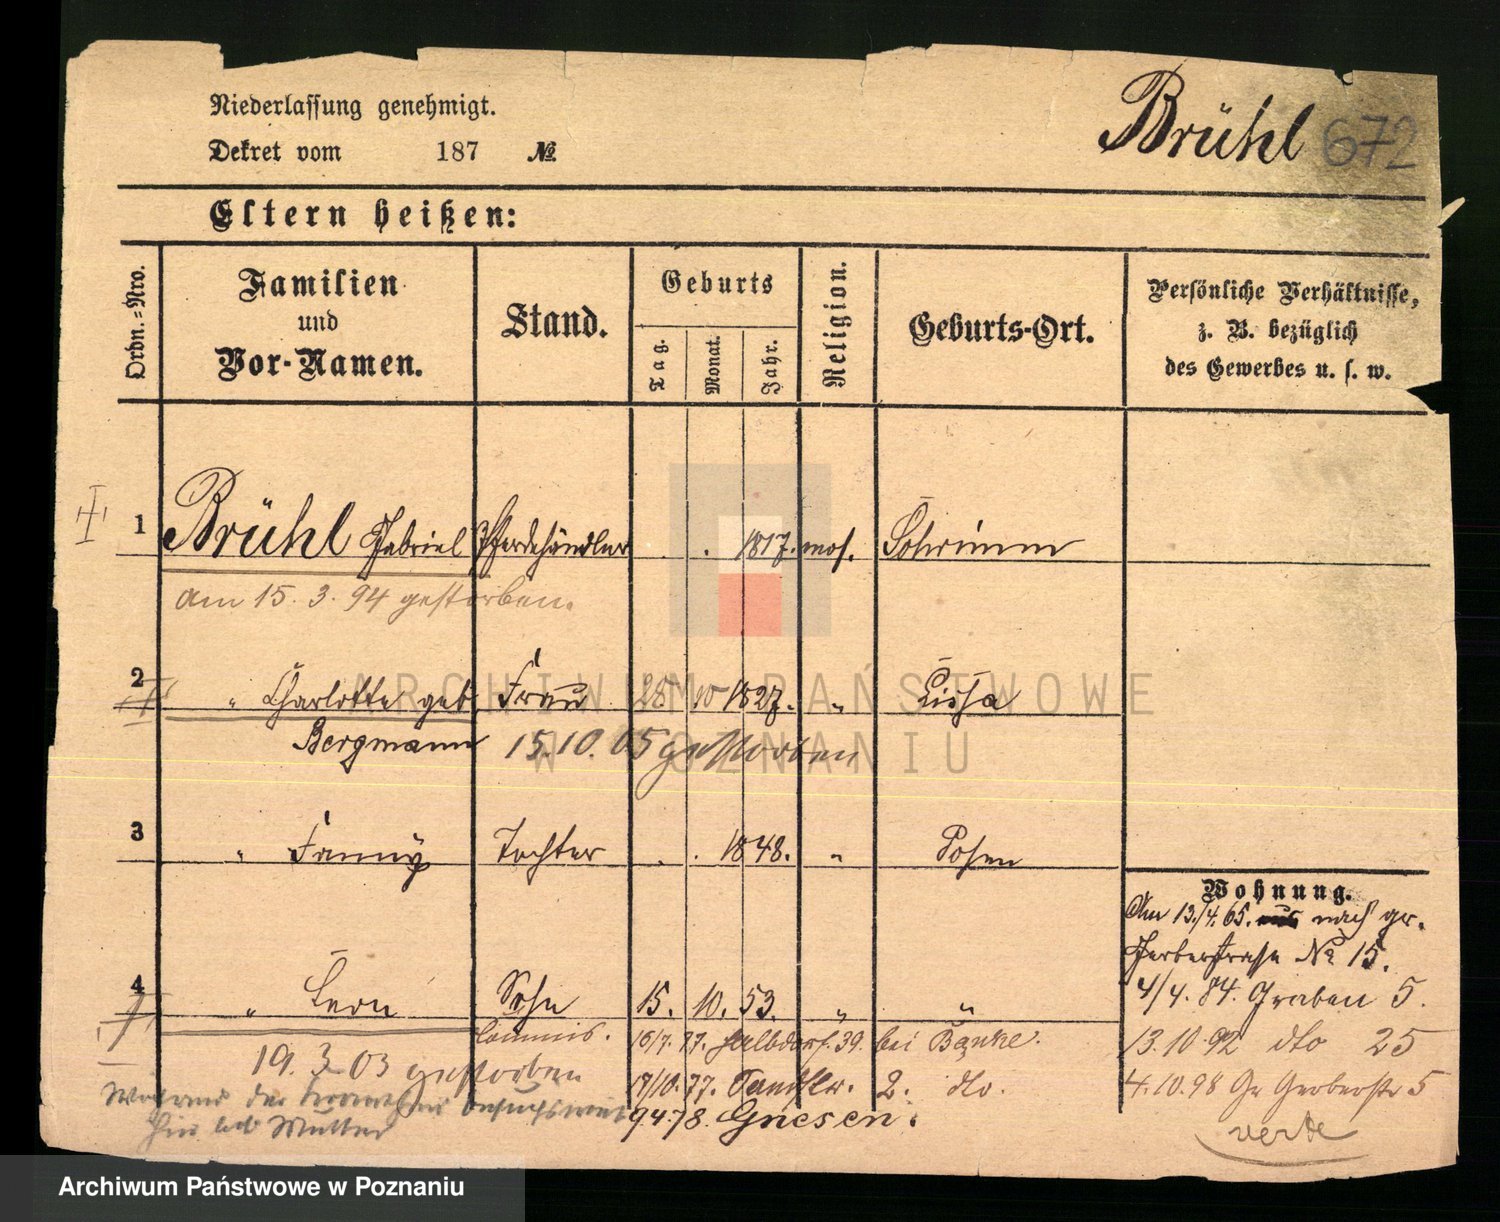 Niederlassung genehmigt.
Dekret vom 187 №
Brühl 672
Eltern heißen:
Ordn.=Nro.
Familien
und
Vor-Namen.
Stand.
Geburts
Tag.
Monat.
Jahr.
Religion.
Geburts-Ort.
Persönliche Verhältnisse,
z. B. bezüglich
des Gewerbes u. s. w.
1 Brühl Gabriel Pferdehändler . . 1817. mos. Schrimm
am 15. 3. 94 gestorben.
2 " Charlotte geb. Frau 28 10 1827. " Lissa
Bergmann 15.10.05 gestorben
3 " Fanny Tochter . . 1848. " Posen
4 " Leon Sohn 15. 10. 53. " "
Commis.
19. 3 03 gestorben
16/7. 77. Halbdorf. 39. bei Banke.
17/10. 77. 2. dto.
9 4 78. Gnesen.
Mutter
Wohnung.
Am 13./4. 65. nach gr.
Gerberstrasse № 15.
4/4. 84. Graben 5.
13.10.92 dto 25
4.10.98 Gr Gerberstr 5
verte
ARCHIWUM PAŃSTWOWE
W POZNANIU
Archiwum Państwowe w Poznaniu